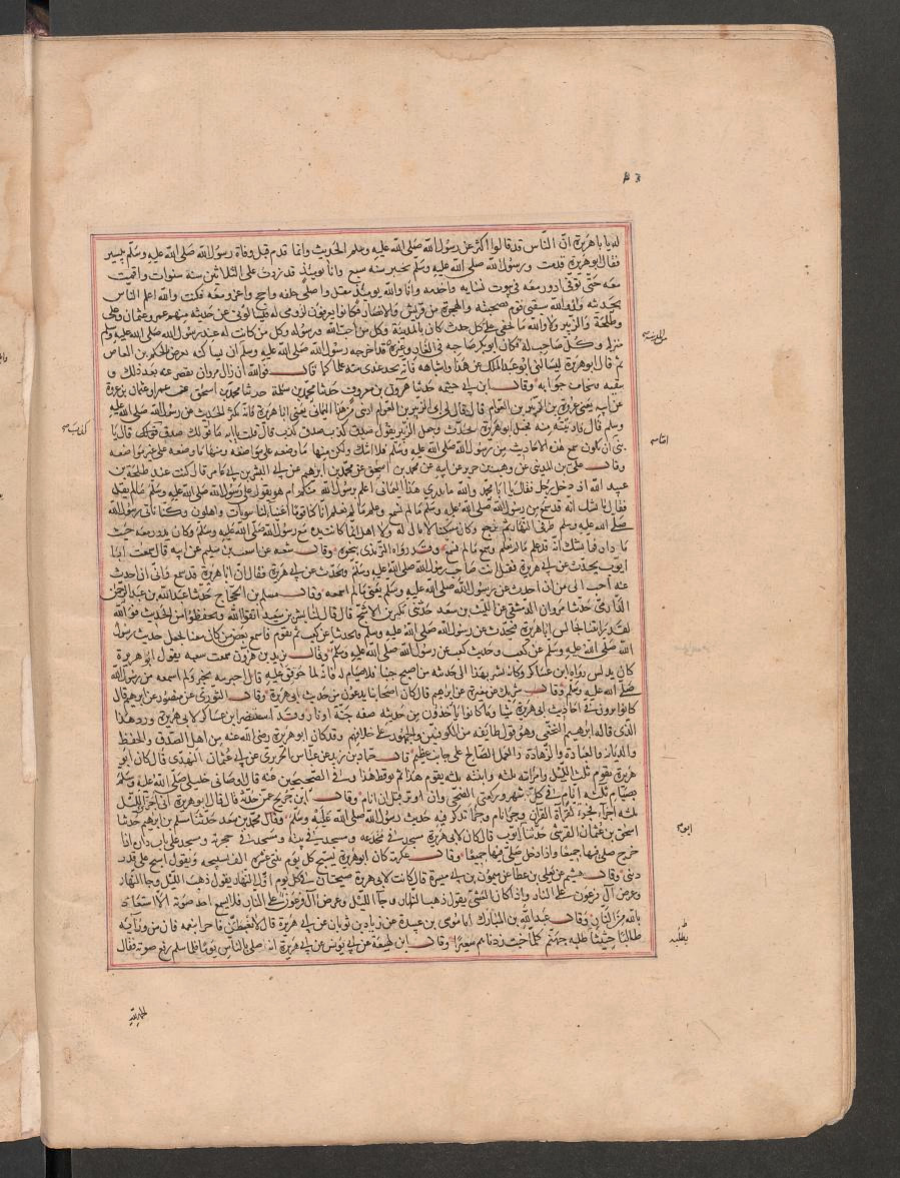 له يا با هريرة ان الناس قد قالوا اكثر عن رسول الله صلى الله عليه وسلم الحديث وانما قدم قبل وفاة رسول الله صلى الله عليه وسلم بيسير
فقال ابو هريرة قدمت ورسول الله صلى الله عليه وسلم بخيبر سنة سبع وانا يومئذ قد زدت على الثلاثين سنة سنوات واقمت
معه حتى توفى ادور معه في بيوت نسايه واخدمه وانا والله يومئذ مقل واصلى خلفه واحج واغزو معه فكنت والله اعلم الناس
بحديثه قد والله سبقنى قوم بصحبته والهجرة من قريش والانصار فكانوا يعرفون لزومى له فيسألونى عن حديثه منهم عمر وعثمان وعلى
وطلحة والزبير ولا والله ما يخفى على كل حدث كان بالمدينة وكل من احب الله ورسوله وكل من كانت له عند رسول الله صلى الله عليه وسلم
منزلة وكل صاحب له فكان ابو بكر صاحبه في الغار وغيره قد اخرجه رسول الله صلى الله عليه وسلم ان يساكنه يعرض بالحكم بن العاص
ثم قال ابو هريرة ليسألنى ابو عبد الملك عن هذا واشباهه فانه يجد عندى منه علما كما قال فوالله ان زال مروان يقصر عنه بعد ذلك و
يتقيه ويخاف جوابه وقال ابن ابي خيثمة حدثنا هرون بن معروف حدثنا محمد بن سلمة حدثنا محمد بن اسحق عن عمر او عثمان بن عروة
عن ابيه يعنى عروة بن الزبير بن العوام قال قال لى ابى الزبير بن العوام ادننى من هذا اليمانى يعنى ابا هريرة فانه يكثر الحديث عن رسول الله صلى الله عليه
وسلم قال فادنيته منه فجعل ابو هريرة يحدث وجعل الزبير يقول صدق كذب صدق كذب قال قلت يا ابه ما قولك صدق كذب قال يا
بنى ان يكون سمع هذه الاحاديث من رسول الله صلى الله عليه وسلم فلا اشك ولكن منها ما وضعه على مواضعه ومنها ما وضعه على غير مواضعه
وقال على بن المدينى عن وهب بن جرير عن ابيه عن محمد بن اسحق عن محمد بن ابرهيم عن ابي اليسر بن ابي عامر قال كنت عند طلحة بن
عبيد الله اذ دخل رجل فقال يا ابا محمد والله ما ندرى هذا اليمانى اعلم برسول الله منكم ام هو يقول على رسول الله صلى الله عليه وسلم ما لم يقل
فقال ما نشك انه قد سمع من رسول الله صلى الله عليه وسلم ما لم نسمع وعلم ما لم نعلم انا كنا قوما اغنيا لنا بيوتات واهلون وكنا ناتى رسول الله
صلى الله عليه وسلم طرفى النهار ثم نرجع وكان مسكينا لا مال له ولا اهل انما كانت يده مع رسول الله صلى الله عليه وسلم وكان يدور معه حيث
ما دار فما نشك انه قد علم ما لم نعلم وسمع ما لم نسمع وقد رواه الترمذى بنحوه وقال شعبة عن اشعث بن سليم عن ابيه قال سمعت ابا
ايوب يحدث عن ابي هريرة فقيل له انت صاحب رسول الله صلى الله عليه وسلم وتحدث عن ابي هريرة فقال ان ابا هريرة قد سمع ما لم وانى ان احدث
عنه احب الى من ان احدث عن رسول الله صلى الله عليه وسلم يعنى ما لم اسمعه وقال مسلم بن الحجاج حدثنا عبد الله بن عبد الرحمن
الدارمى حدثنا مروان الدمشقى عن الليث بن سعد حدثنى بكير بن الاشج قال قال لنا بسر بن سعيد اتقوا الله وتحفظوا من الحديث فوالله
لقد رايتنا نجالس ابا هريرة فيحدث عن رسول الله صلى الله عليه وسلم ويحدثنا عن كعب ثم يقوم فاسمع بعض من كان معنا يجعل حديث رسول
الله صلى الله عليه وسلم عن كعب وحديث كعب عن رسول الله صلى الله عليه وسلم وقال يزيد بن هرون سمعت شعبة يقول ابو هريرة
كان يدلس رواه ابن عساكر وكان شعبة يشير بهذا الى حديثه من اصبح جنبا فلا صيام له فانه لما حوقق عليه قال اخبرنيه مخبر ولم اسمعه من رسول الله
صلى الله عليه وسلم وقال شريك عن مغيرة عن ابراهيم قال كان اصحابنا يدعون من حديث ابي هريرة وقال الثورى عن منصور عن ابرهيم قال
كانوا يرون في احاديث ابي هريرة شيا وما كانوا ياخذون من حديثه صفة جنة او نار وقد انتصر ابن عساكر لابي هريرة ورد هذا
الذى قاله ابرهيم النخعى وهو قول طايفة من الكوفيين والجمهور على خلافهم وقد كان ابو هريرة رضى الله عنه من اهل الصدق والحفظ
والديانة والعبادة والزهادة والعمل الصالح على جانب عظيم قال حماد بن زيد عن عباس الجريرى عن ابي عثمان النهدى قال كان ابو
هريرة يقوم ثلث الليل وامراته ثلثه وابنته ثلثه يقوم هذا ثم يوقظ هذا وفي الصحيحين عنه قال اوصانى خليلى صلى الله عليه وسلم
بصيام ثلثة ايام في كل شهر وركعتى الضحى وان اوتر قبل ان انام وقال ابن جريج عمن حدثه قال قال ابو هريرة انى اجزى الليل
ثلثة اجزاء فجزء لقراة القران وجزء انام وجزء اتذكر فيه حديث رسول الله صلى الله عليه وسلم وقال محمد بن سعد حدثنا مسلم بن ابرهيم حدثنا
اسحق بن عثمان القرشى حدثنا ايوب قال كان لابي هريرة مسجد في مخدعه ومسجد في بيته ومسجد في حجرته ومسجد على باب داره اذا
خرج صلى فيها جميعا واذا دخل صلى فيها جميعا وقال عكرمة كان ابو هريرة يسبح كل يوم ثنتى عشرة الف تسبيحة ويقول اسبح على قدر
دينى وقال هشيم عن يعلى بن عطا عن ميمون بن ابي ميسرة قال كانت لابي هريرة صيحتان في كل يوم اول النهار يقول ذهب الليل وجا النهار
وعرض آل فرعون على النار واذا كان العشى يقول ذهب النهار وجا الليل وعرض آل فرعون على النار فلا يسمع احد صوته الا استعاذ
بالله من النار وقال عبد الله بن المبارك انا موسى بن عبيدة عن زياد بن ثوبان عن ابي هريرة قال لا تغبطن فاجرا بنعمة فان من ورائه
طالبا حثيثا طلبه جهنم كلما خبت زدناهم سعيرا وقال ابن لهيعة عن ابي يونس عن ابي هريرة انه صلى بالناس يوما فلما سلم رفع صوته فقال
ابو م
طلبه
الحمد لله